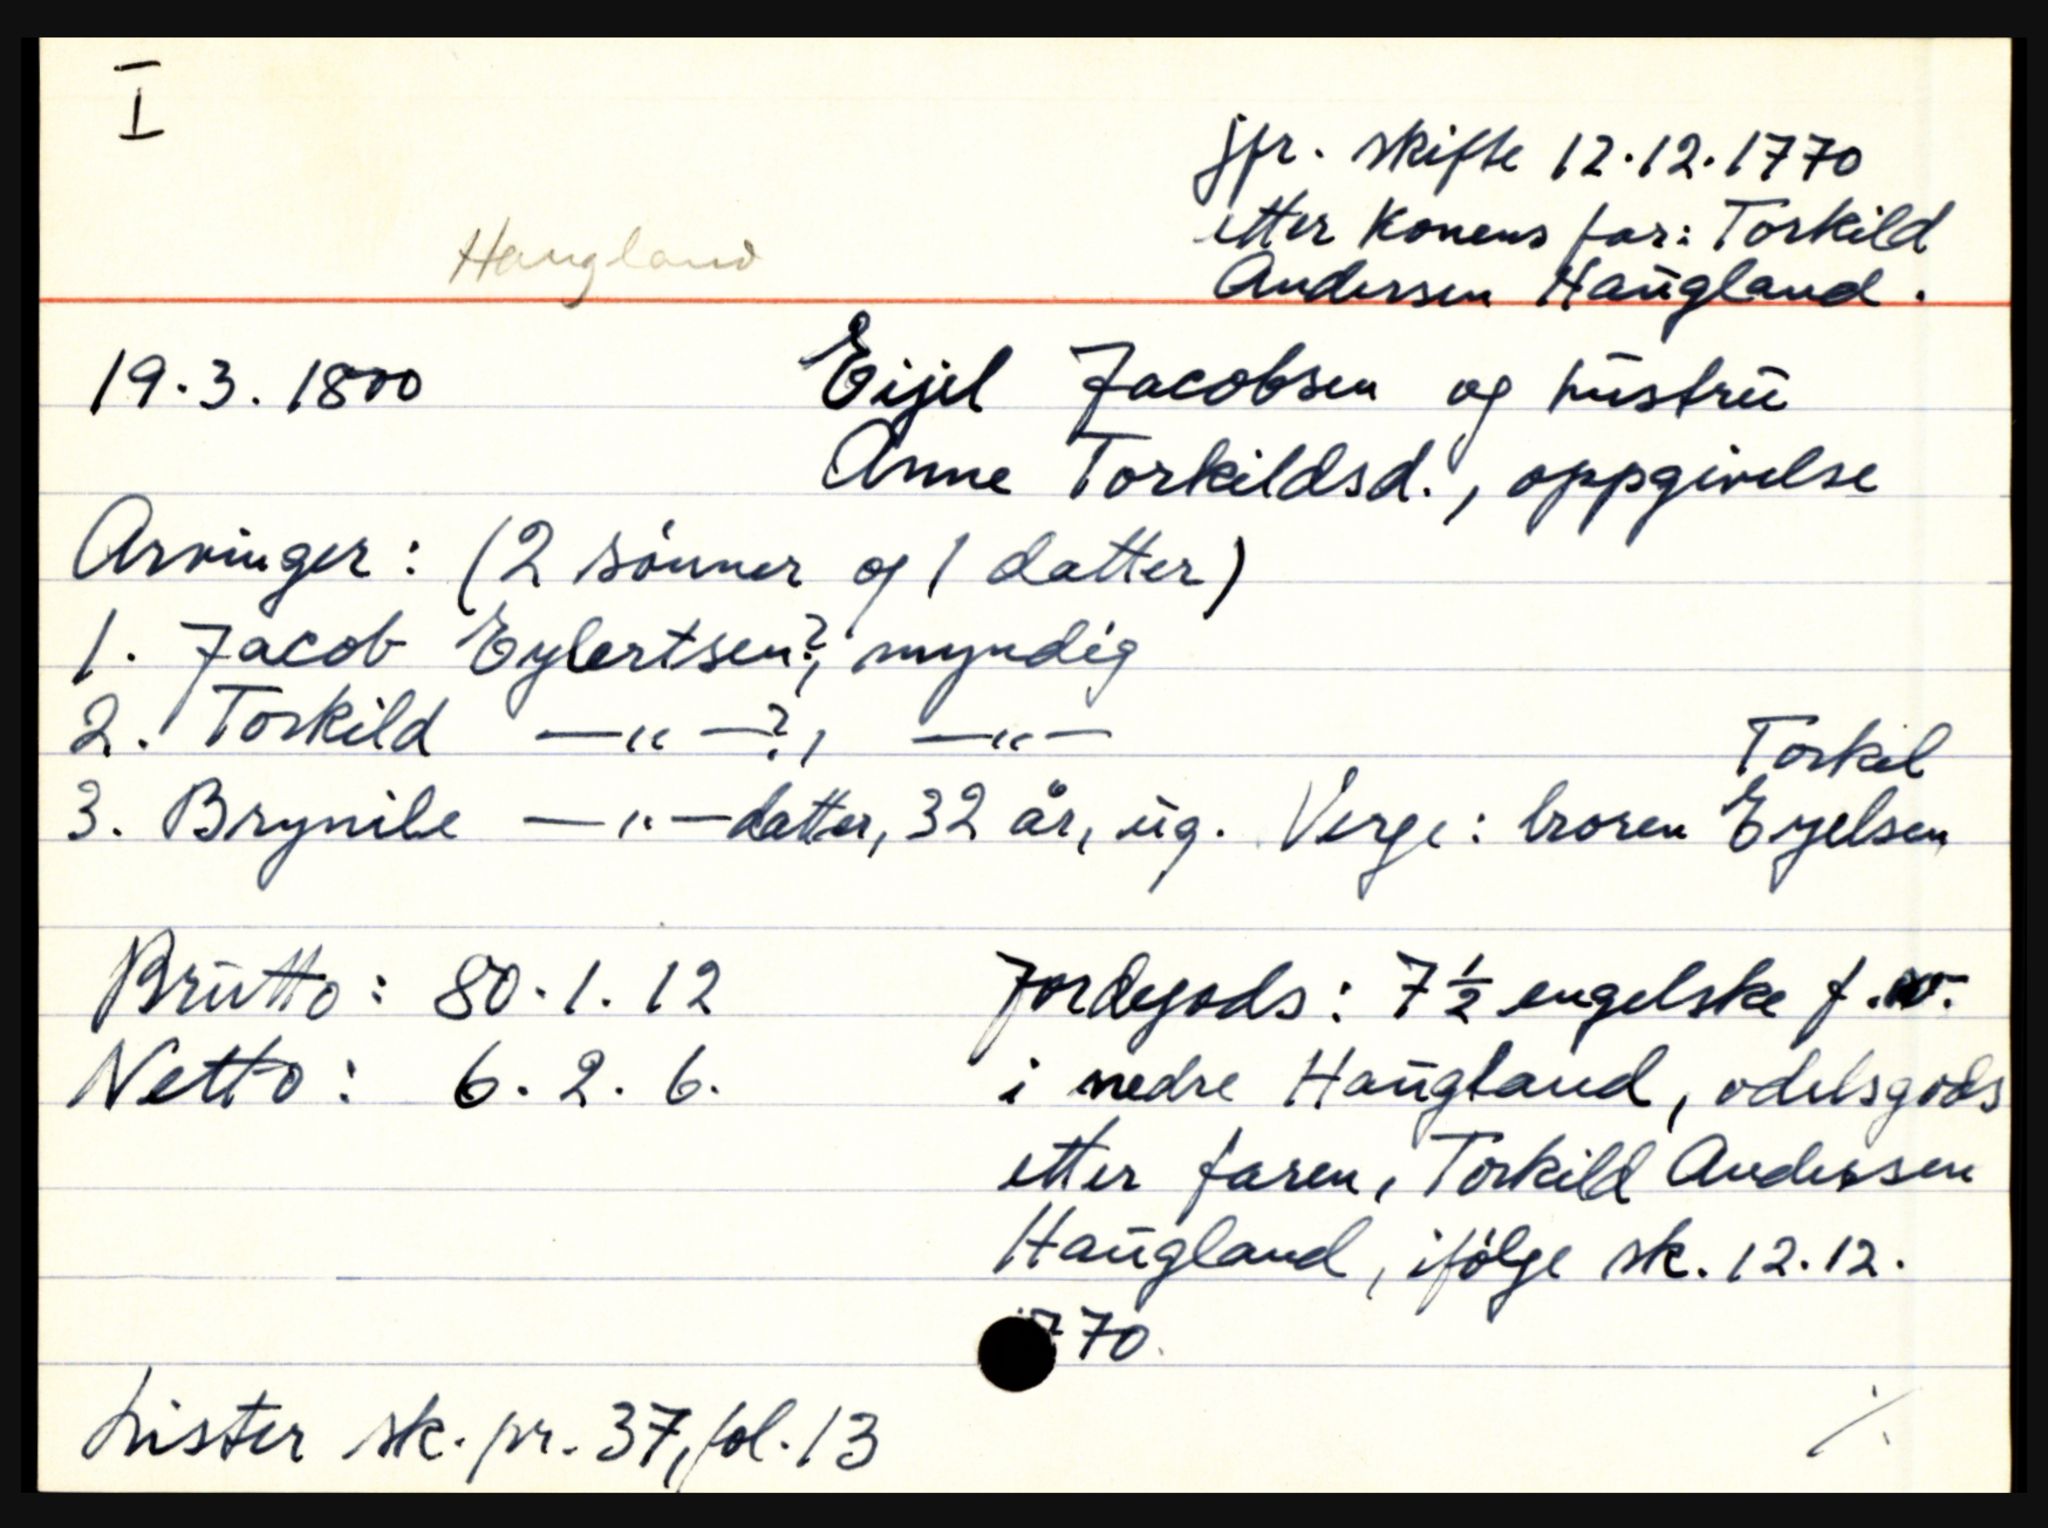 I
jfr. skifte 12.12.1770
etter konens far: Torkild
Andersen Haugland.
Haugland
19.3.1800 Eijel Jacobsen og hustru
Anne Torkildsd., oppgivelse
Arvinger: (2 sønner og 1 datter)
1. Jacob Eylertsen?, myndig
2. Torkild —"—?, —"—
Torkil
3. Brynile —"—datter, 32 år, ug. Verge: broren Eyelsen
Brutto: 80.1.12 Jordegods: 7½ engelske f.
Netto: 6.2.6. i nedre Haugland, odelsgods
etter faren, Torkild Andersen
Haugland, ifølge sk. 12.12.
770.
Lister sk.pr. 37, fol. 13 ·/.